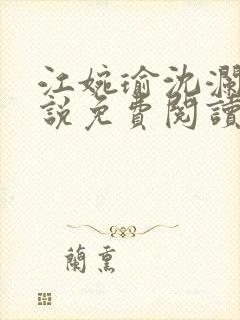 江婉瑜沈瀾
說免費閱讀
蘭熏